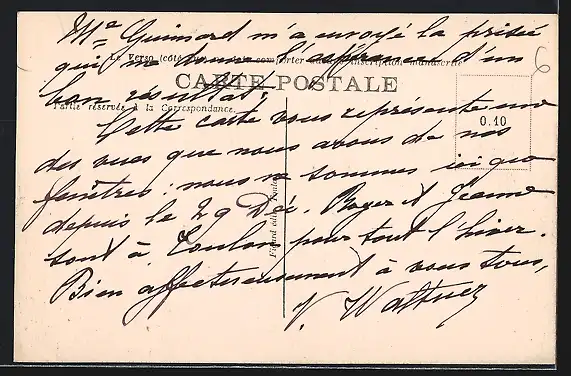 Mme Guimard m'a envoyé la prisée
qui me donne l'espérance d'un
Le Verso (côté comporter inscription manuscrite
CARTE POSTALE
bon résultat.
Partie réservée à la Correspondance.
Cette carte vous représente une
0.10
des vues que nous avons de nos
fenêtres : nous ne sommes ici que
depuis le 29 Déc. Roger et Jeanne
sont à Toulon pour tout l'hiver.
Bien affectueusement à vous tous,
V. Wattnez
6